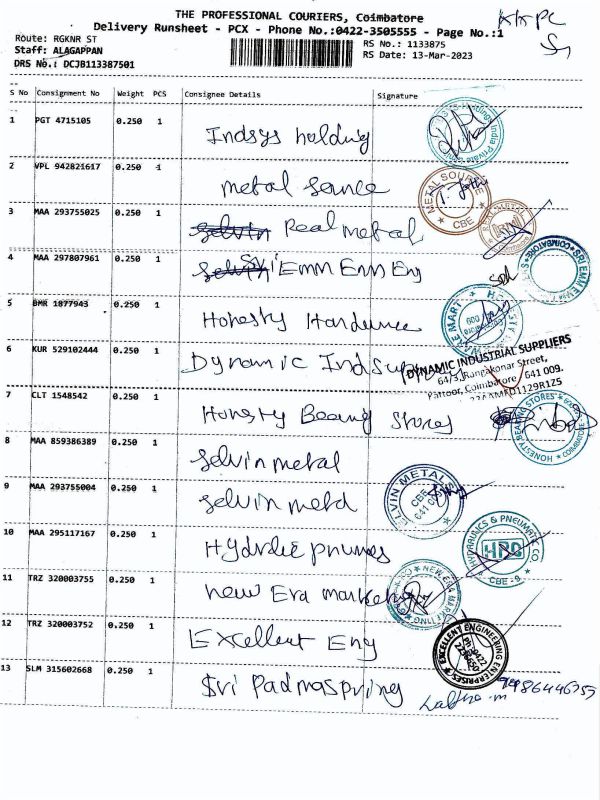 THE PROFESSIONAL COURIERS, Coimbatore
Delivery Runsheet - PCX - Phone No.:0422-3505555 - Page No.:1
Route: RGKNR ST
RS No.: 1133875
Staff: ALAGAPPAN
RS Date: 13-Mar-2023
DRS No.: DCJB113387501
S No Consignment No Weight PCS Consignee Details Signature
1 PGT 4715105 0.250 1 Indsys holding
2 VPL 942821617 0.250 1 metal source
METAL SOURCE CBE
3 MAA 293755025 0.250 1 selvin Real metal
REAL METAL
4 MAA 297807961 0.250 1 selvin Sri Emm Enn Eng
SRI EMM COIMBATORE
5 BMR 1877943 0.250 1 Honesty Hardware
HONESTY MART
6 KUR 529102444 0.250 1 Dynamic Ind Suppliers
DYNAMIC INDUSTRIAL SUPPLIERS
64/3, Rangakonar Street,
Kattoor, Coimbatore - 641 009.
7 CLT 1548542 0.250 1 Honesty Bearing Stores
HONESTY BEARING STORES COIMBATORE
8 MAA 859386389 0.250 1 selvin metal
9 MAA 293755004 0.250 1 selvin metal
SELVIN METALS CBE
10 MAA 295117167 0.250 1 Hydralic pnumes
HYDRAULICS & PNEUMATIC CO HPC CBE - 9
11 TRZ 320003755 0.250 1 New Era marketing
NEW ERA MARKETING
12 TRZ 320003752 0.250 1 Excellent Eng
EXCELLENT ENGINEERING ENTERPRISES
13 SLM 315602668 0.250 1 Sri Padma spring